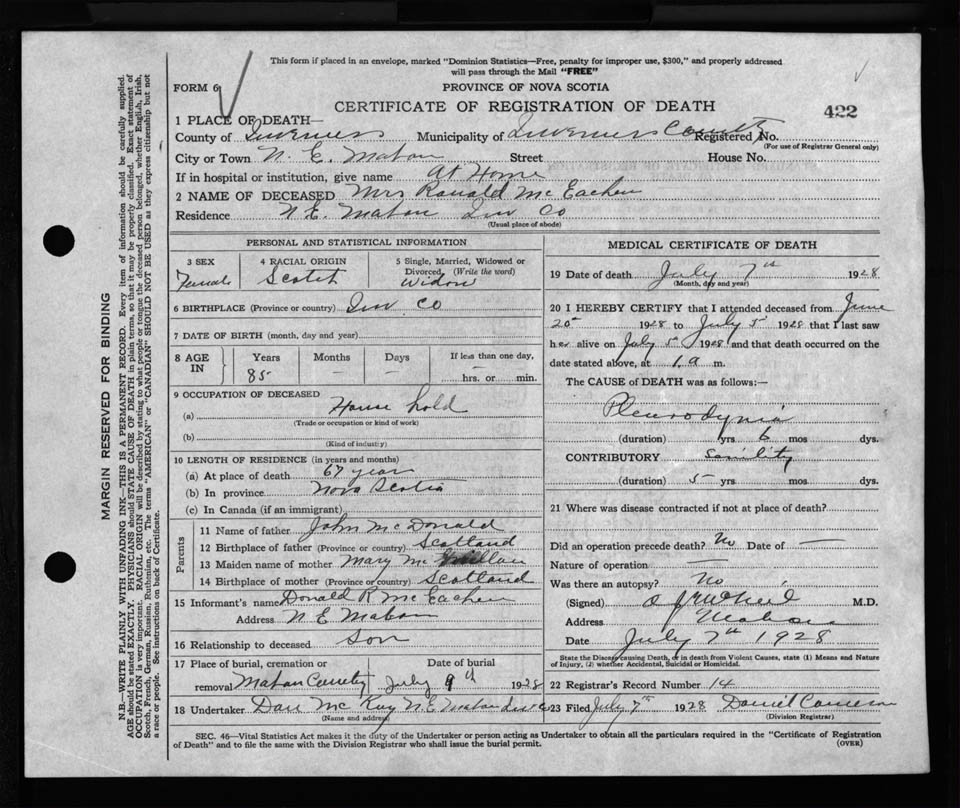 This form if placed in an envelope, marked "Dominion Statistics—Free, penalty for improper use, $300," and properly addressed
will pass through the Mail "FREE"
FORM 6
PROVINCE OF NOVA SCOTIA
CERTIFICATE OF REGISTRATION OF DEATH
422
1 PLACE OF DEATH—
County of Inverness Municipality of Inverness County Registered No.
(For use of Registrar General only)
City or Town N. E. Mabou Street House No.
If in hospital or institution, give name At Home
2 NAME OF DECEASED Mrs Ronald McEachen
Residence N E. Mabou Inv Co
(Usual place of abode)
PERSONAL AND STATISTICAL INFORMATION
3 SEX 4 RACIAL ORIGIN 5 Single, Married, Widowed or
Divorced, (Write the word)
Female Scotch Widow
6 BIRTHPLACE (Province or country) Inv. Co
7 DATE OF BIRTH (month, day and year)
8 AGE IN Years Months Days If less than one day,
85 — — hrs. or min.
9 OCCUPATION OF DECEASED
(a) House hold
(Trade or occupation or kind of work)
(b)
(Kind of industry)
10 LENGTH OF RESIDENCE (in years and months)
(a) At place of death 67 year
(b) In province Nova Scotia
(c) In Canada (if an immigrant)
Parents
11 Name of father John McDonald
12 Birthplace of father (Province or country) Scotland
13 Maiden name of mother Mary Mc
14 Birthplace of mother (Province or country) Scotland
15 Informant's name Donald R McEachen
Address N. E Mabou
16 Relationship to deceased Son
17 Place of burial, cremation or Date of burial
removal Mabou July 9th 1928
18 Undertaker Dan McKay N E Mabou
(Name and address)
MEDICAL CERTIFICATE OF DEATH
19 Date of death July 7th 1928
(Month, day and year)
20 I HEREBY CERTIFY that I attended deceased from June
20 1928 to July 5 1928 that I last saw
her alive on July 5 1928 and that death occurred on the
date stated above, at 1. a m.
The CAUSE of DEATH was as follows:—
Pleurodynia
(duration) yrs 6 mos dys.
CONTRIBUTORY Senility
(duration) 5 yrs mos dys.
21 Where was disease contracted if not at place of death?
Did an operation precede death? No Date of —
Nature of operation —
Was there an autopsy? No
(Signed) M.D.
Address Mabou
Date July 7th 1928
State the Disease causing Death, or in death from Violent Causes, state (1) Means and Nature
of Injury, (2) whether Accidental, Suicidal or Homicidal.
22 Registrar's Record Number 14
23 Filed July 7th 1928 Daniel Cameron
(Division Registrar)
SEC. 46—Vital Statistics Act makes it the duty of the Undertaker or person acting as Undertaker to obtain all the particulars required in the "Certificate of Registration
of Death" and to file the same with the Division Registrar who shall issue the burial permit.
(OVER)
MARGIN RESERVED FOR BINDING
N.B.—WRITE PLAINLY WITH UNFADING INK—THIS IS A PERMANENT RECORD. Every item of information should be carefully supplied.
AGE should be stated EXACTLY. PHYSICIANS should STATE CAUSE OF DEATH in plain terms, so that it may be properly classified. Exact statement of
OCCUPATION is very important. RACIAL ORIGIN will be described by stating to what people or tongue the deceased person belonged, whether English, Irish,
Scotch, French, German, Russian, Ruthenian, etc. The terms "AMERICAN" or "CANADIAN" SHOULD NOT BE USED as they express citizenship but not
a race or people. See instructions on back of Certificate.